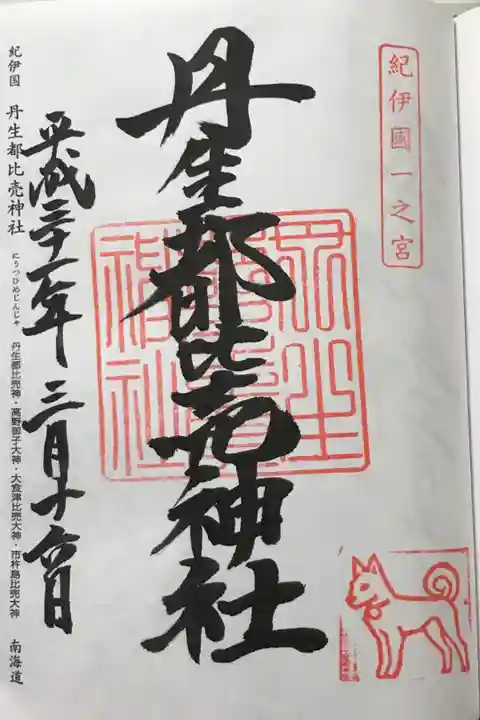 紀伊國一之宮
丹生都比売神社
平成三十一年三月十六日
紀伊国 丹生都比売神社 にうつひめじんじゃ 丹生都比売神・高野御子大神・大食津比売大神・市杵島比売大神 南海道